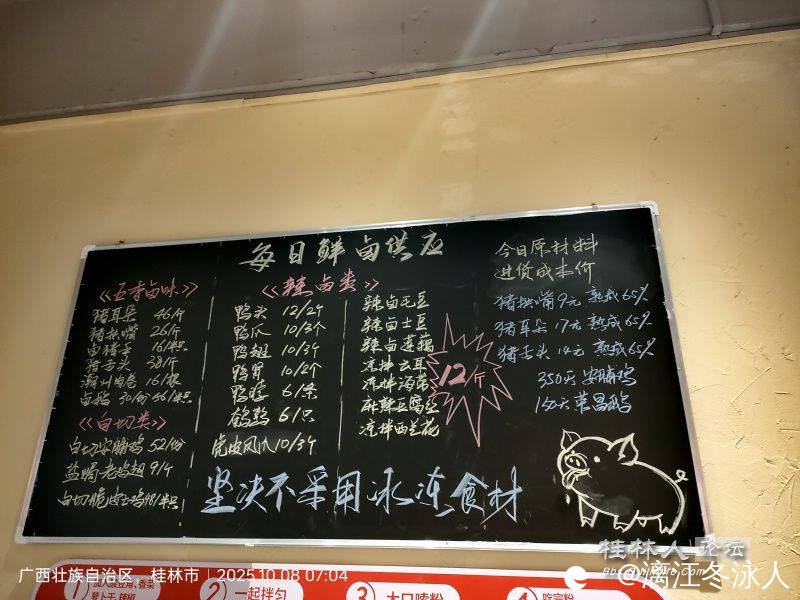 每日鲜卤供应
《五香卤味》
猪耳朵 46/斤
猪拱嘴 26/斤
卤猪手 16/半只
猪舌头 38/斤
潮州肉卷 16/根
卤鹅 30/份 66/半只
《白切类》
白切安脯鸡 52/份
盐焗老鸡翅 9/个
白切脆皮土鸡 48/半只
《辣卤类》
鸭头 12/2个
鸭爪 10/3个
鸭翅 10/3个
鸭胃 10/2个
鸭脖 6/条
鹌鹑 6/只
虎皮凤爪 10/3个
辣卤毛豆
辣卤土豆
辣卤莲藕
凉拌云耳
凉拌海带
麻辣豆腐丝
凉拌西兰花
12/斤
今日原材料
进货成本价
猪拱嘴 9元 熟成65%
猪耳朵 17元 熟成65%
猪舌头 14元 熟成65%
350天 安脯鸡
150天 荣昌鹅
坚决不采用冰冻食材
1
加入酸豆角、香菜
萝卜干、辣椒
2
一起拌匀
3
大口嗦粉
4
吃完粉
广西壮族自治区，桂林市 | 2025.10.08 07:04
桂林人论坛
@漓江冬泳人